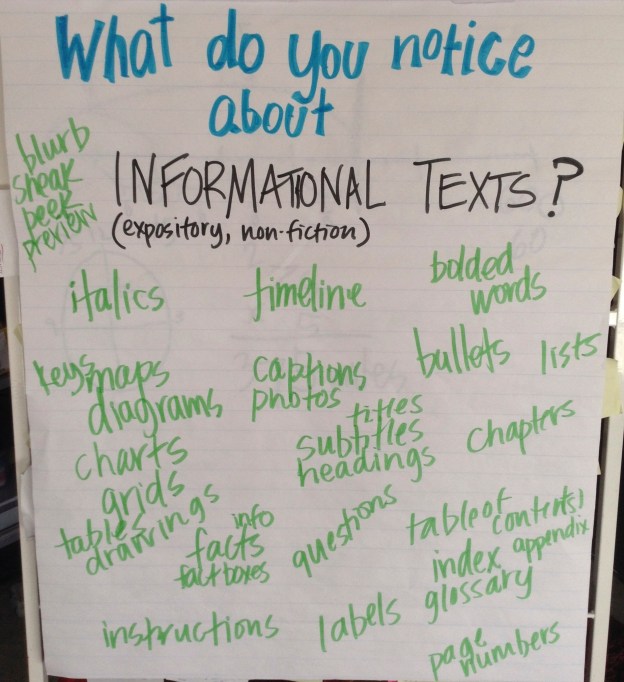 What do you notice
about
INFORMATIONAL TEXTS?
(expository, non-fiction)
blurb
sneak
peek
preview
italics
timeline
bolded
words
keys maps
diagrams
captions
photos
bullets
lists
titles
subtitles
headings
chapters
charts
grids
tables
drawings
info
facts
fact boxes
questions
table of contents
index appendix
glossary
instructions
labels
page
numbers